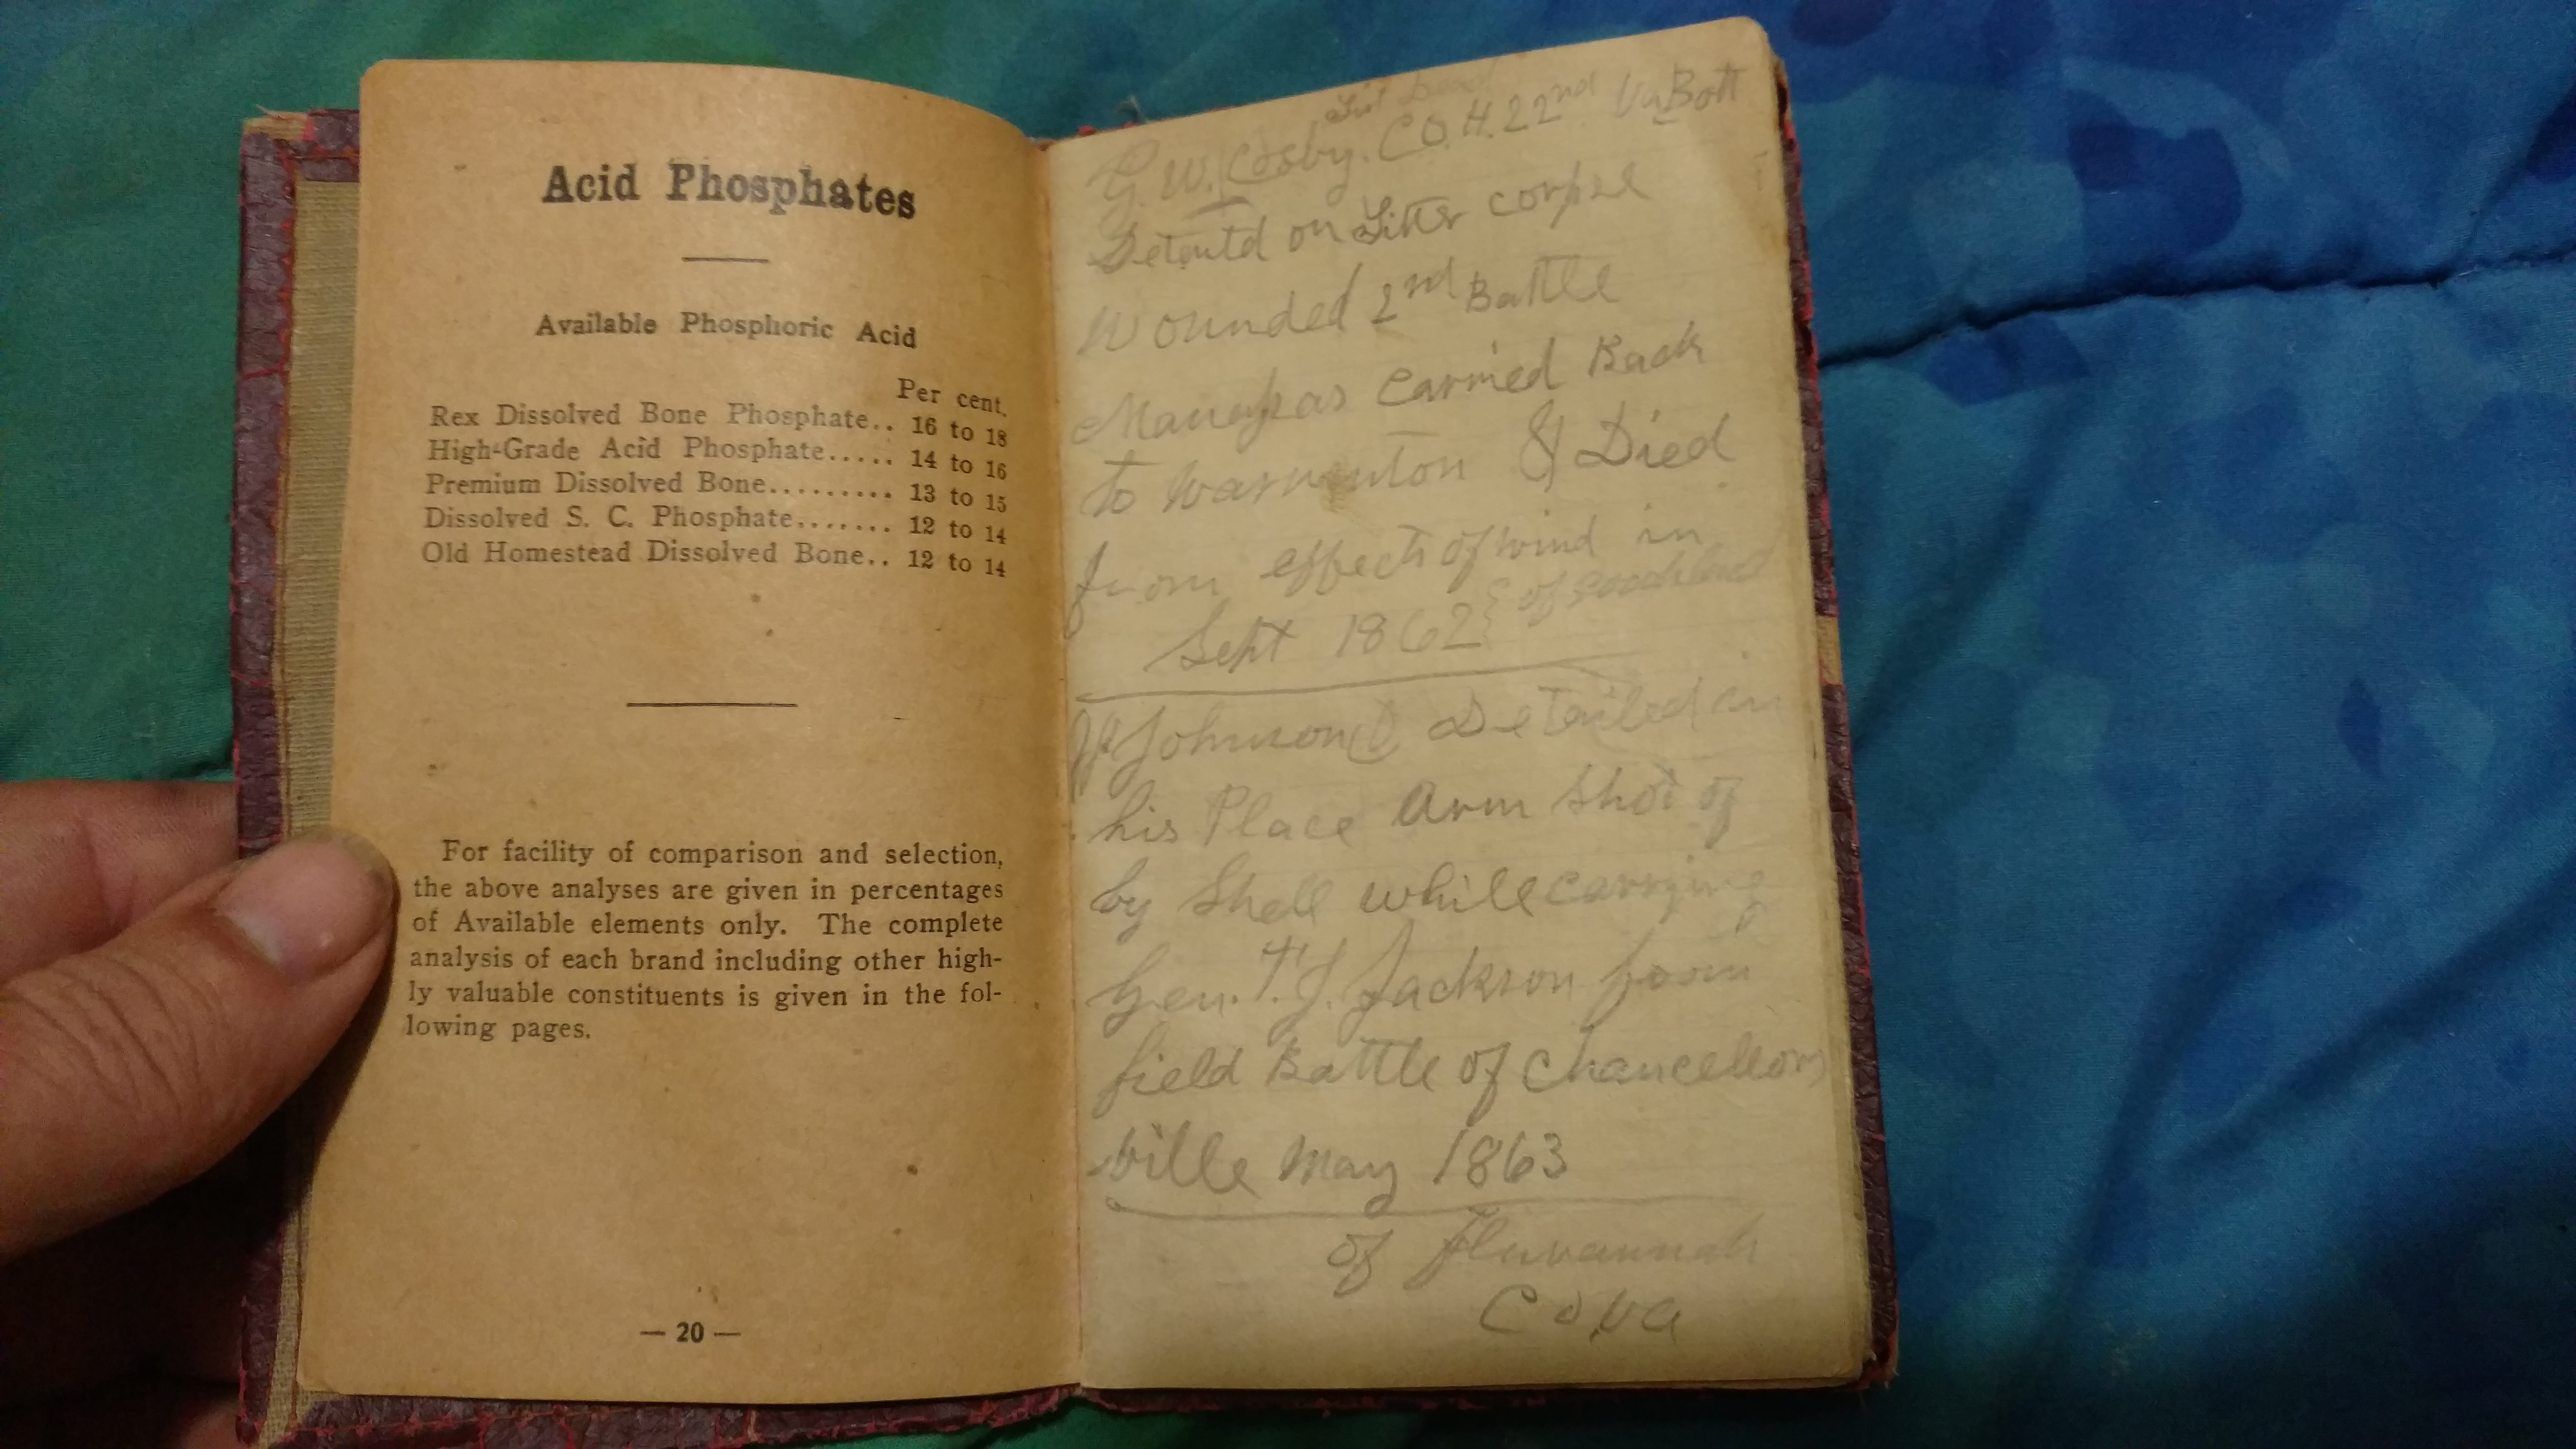 Acid Phosphates
Available Phosphoric Acid
Per cent.
Rex Dissolved Bone Phosphate.. 16 to 18
High-Grade Acid Phosphate..... 14 to 16
Premium Dissolved Bone......... 13 to 15
Dissolved S. C. Phosphate....... 12 to 14
Old Homestead Dissolved Bone.. 12 to 14
For facility of comparison and selection,
the above analyses are given in percentages
of Available elements only. The complete
analysis of each brand including other high-
ly valuable constituents is given in the fol-
lowing pages.
— 20 —
G. W. Cosby. CO. H. 22nd Va Batt
on Litter corpse
Wounded 2nd Battle
Manassas Carried Back
to Warrenton & Died
from effects of wind in
Sept 1862 } of Goochland
Johnson Detailed in
his Place Arm Shot of
by Shell while carrying
Gen. T. J. Jackson from
field Battle of Chancellors
ville May 1863
of Fluvannah
Co, Va